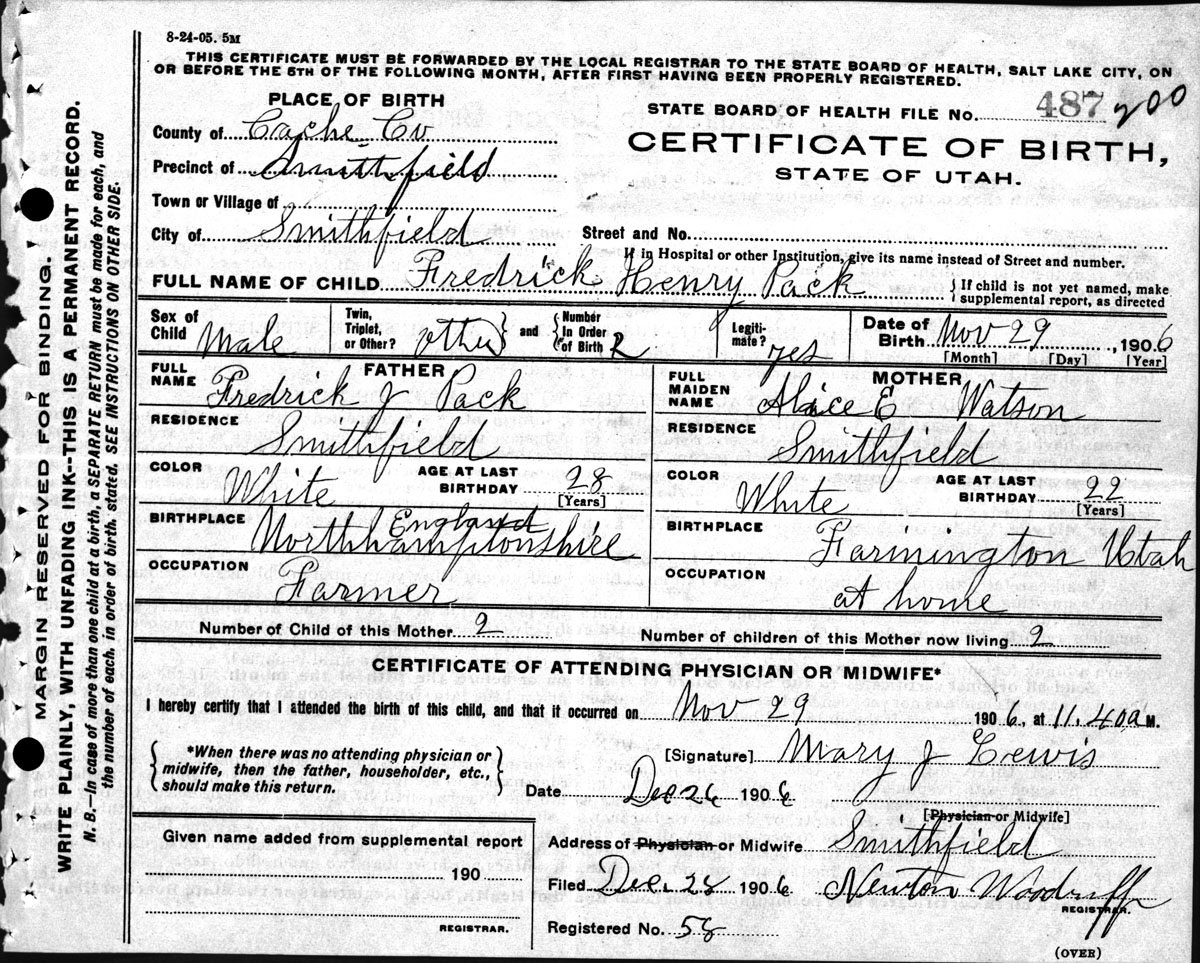 8-24-05. 5M
THIS CERTIFICATE MUST BE FORWARDED BY THE LOCAL REGISTRAR TO THE STATE BOARD OF HEALTH, SALT LAKE CITY, ON
OR BEFORE THE 5TH OF THE FOLLOWING MONTH, AFTER FIRST HAVING BEEN PROPERLY REGISTERED.
PLACE OF BIRTH
STATE BOARD OF HEALTH FILE No. 487 200
County of Cache Co
CERTIFICATE OF BIRTH,
STATE OF UTAH.
Precinct of Smithfield
Town or Village of
City of Smithfield
Street and No.
If in Hospital or other Institution, give its name instead of Street and number.
FULL NAME OF CHILD Fredrick Henry Pack
{If child is not yet named, make
supplemental report, as directed
Sex of
Child Male
Twin,
Triplet,
or Other? other} and {Number
in Order
of Birth 2
Legiti-
mate? yes
Date of
Birth Nov 29, 1906
[Month] [Day] [Year]
FATHER
FULL
NAME Fredrick J Pack
RESIDENCE Smithfield
COLOR White
AGE AT LAST
BIRTHDAY 28
[Years]
BIRTHPLACE England
Northhamptonshire
OCCUPATION Farmer
MOTHER
FULL
MAIDEN
NAME Alice E Watson
RESIDENCE Smithfield
COLOR White
AGE AT LAST
BIRTHDAY 22
[Years]
BIRTHPLACE Farmington Utah
OCCUPATION at home
Number of Child of this Mother 2
Number of children of this Mother now living 2
CERTIFICATE OF ATTENDING PHYSICIAN OR MIDWIFE*
I hereby certify that I attended the birth of this child, and that it occurred on Nov 29 1906, at 11.40a M.
{*When there was no attending physician or
midwife, then the father, householder, etc.,
should make this return.}
[Signature] Mary J Lewis
Date Dec 26 1906
[Physician or Midwife]
Address of Physician or Midwife Smithfield
Filed Dec 28 1906 Newton Woodruff
REGISTRAR.
Registered No. 58
(OVER)
Given name added from supplemental report
190
REGISTRAR.
MARGIN RESERVED FOR BINDING.
WRITE PLAINLY, WITH UNFADING INK--THIS IS A PERMANENT RECORD.
N. B.—In case of more than one child at a birth, a SEPARATE RETURN must be made for each, and
the number of each, in order of birth, stated. SEE INSTRUCTIONS ON OTHER SIDE.